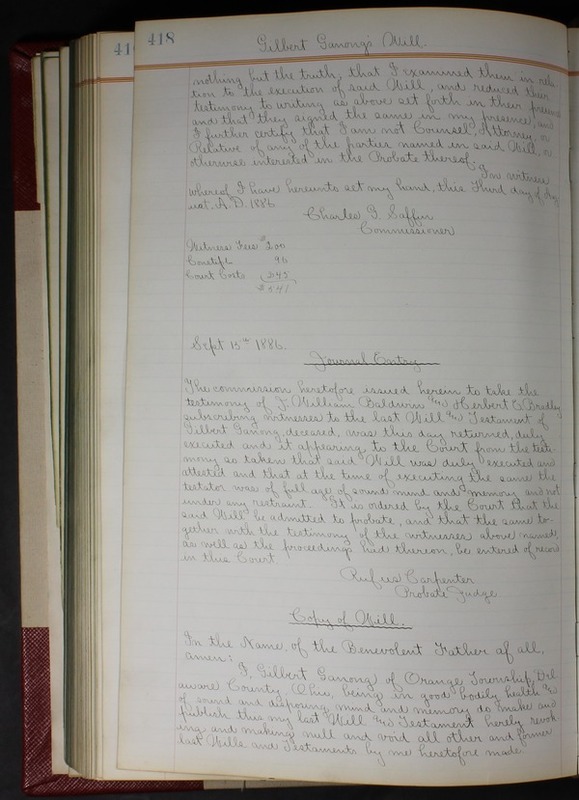 418
Gilbert Ganong's Will.
nothing but the truth, that I examined them in rela-
tion to the execution of said Will, and reduced their
testimony to writing as above set forth in their presence
and that they signed the same in my presence, and
I further certify that I am not Counsel, Attorney, or
Relative of any of the parties named in said Will, or
otherwise interested in the Probate thereof.
In witness
whereof I have hereunto set my hand, this Third day of Aug
ust, A.D. 1886
Charles G. Saffin
Commissioner
Witness Fees $2 00
96
Court Costs 2 45
$5 41
Sept 15th 1886.
Journal Entry
The commission heretofore issued herein to take the
testimony of J. William Baldwin and Herbert E Bradley
subscribing witnesses to the last Will and Testament of
Gilbert Ganong, deceased, was this day returned, duly
executed and it appearing to the Court from the testi-
mony so taken that said Will was duly executed and
attested and that at the time of executing the same the
testator was of full age of sound mind and memory and not
under any restraint. It is ordered by the Court that the
said Will be admitted to probate, and that the same to-
gether with the testimony of the witnesses above named,
as well as the proceedings had thereon, be entered of record
in this Court
Rufus Carpenter
Probate Judge
Copy of Will.
In the Name of the Benevolent Father of all,
amen:
I, Gilbert Ganong of Orange Township, Del
aware County, Ohio, being in good bodily health and
of sound and disposing mind and memory do make and
publish this my last Will and Testament hereby revok
ing and making null and void all other and former
last Wills and Testaments by me heretofore made.